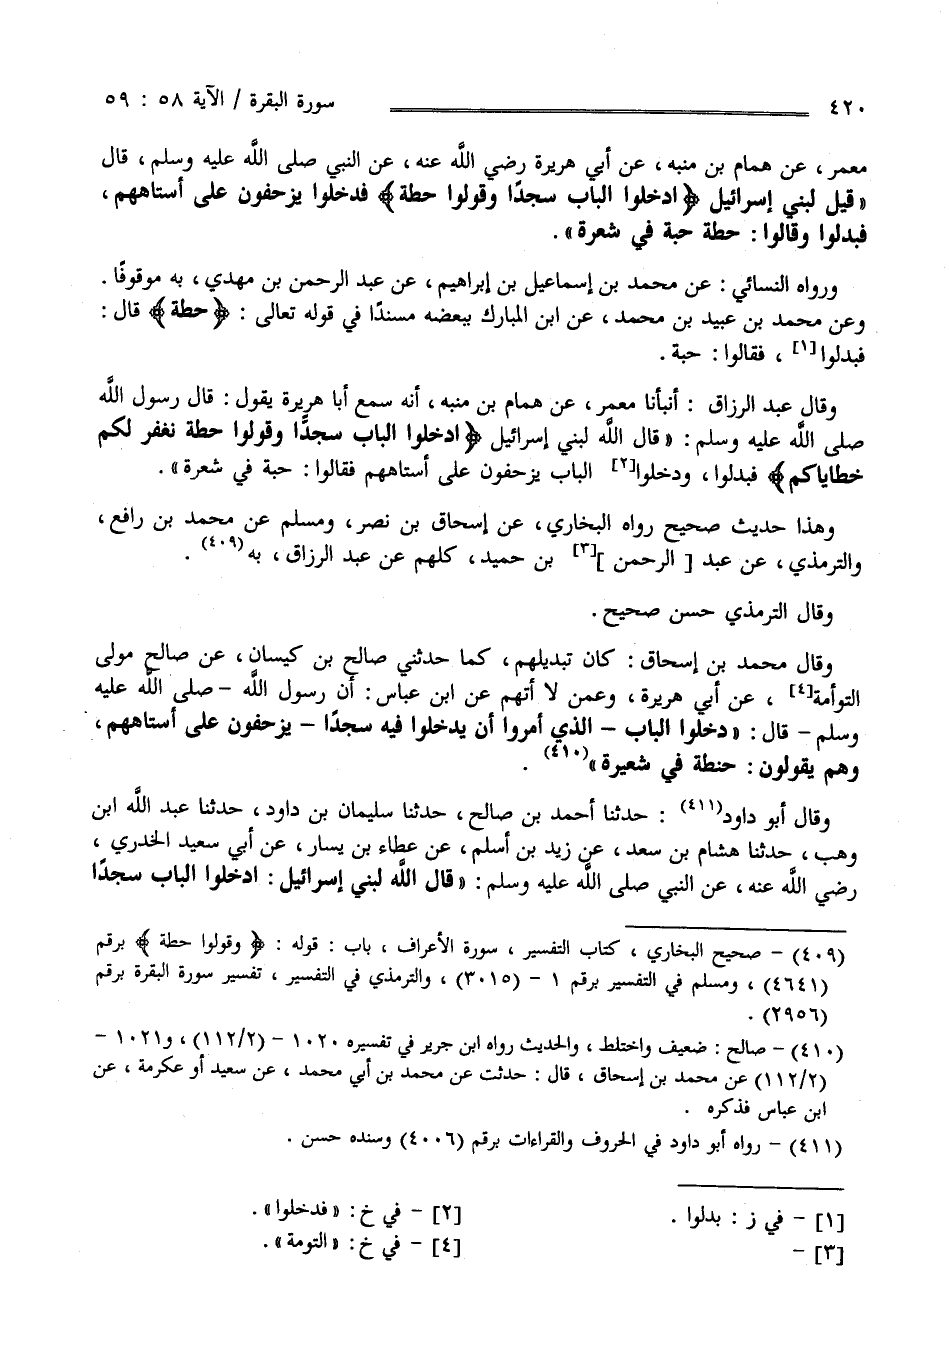 ٤٢٠ سورة البقرة / الآية ٥٨ : ٥٩
معمر، عن همام بن منبه، عن أبي هريرة رضي اللَّه عنه، عن النبي صلى اللَّه عليه وسلم، قال
« قيل لبني إسرائيل ﴿ ادخلوا الباب سجدًا وقولوا حطة ﴾ فدخلوا يزحفون على أستاههم ،
فبدلوا وقالوا : حطة حبة في شعرة » .
ورواه النسائي : عن محمد بن إسماعيل بن إبراهيم، عن عبد الرحمن بن مهدي، به موقوفًا .
وعن محمد بن عبيد بن محمد، عن ابن المبارك ببعضه مسندًا في قوله تعالى : ﴿ حطة ﴾ قال :
فبدلوا[١] ، فقالوا : حبة .
وقال عبد الرزاق : أنبأنا معمر، عن همام بن منبه، أنه سمع أبا هريرة يقول : قال رسول اللَّه
صلى اللَّه عليه وسلم : « قال اللَّه لبني إسرائيل ﴿ ادخلوا الباب سجدًا وقولوا حطة نغفر لكم
خطاياكم ﴾ فبدلوا، ودخلوا[٢] الباب يزحفون على أستاههم فقالوا : حبة في شعرة » .
وهذا حديث صحيح رواه البخاري، عن إسحاق بن نصر، ومسلم عن محمد بن رافع،
والترمذي، عن عبد [ الرحمن ][٣] بن حميد، كلهم عن عبد الرزاق، به(٤٠٩) .
وقال الترمذي حسن صحيح .
وقال محمد بن إسحاق : كان تبديلهم، كما حدثني صالح بن كيسان، عن صالح مولى
التوأمة[٤] ، عن أبي هريرة، وعمن لا أتهم عن ابن عباس : أن رسول اللَّه -صلى اللَّه عليه
وسلم- قال : « دخلوا الباب - الذي أمروا أن يدخلوا فيه سجدًا - يزحفون على أستاههم ،
وهم يقولون : حنطة في شعيرة »(٤١٠) .
وقال أبو داود(٤١١) : حدثنا أحمد بن صالح، حدثنا سليمان بن داود، حدثنا عبد اللَّه ابن
وهب، حدثنا هشام بن سعد، عن زيد بن أسلم، عن عطاء بن يسار، عن أبي سعيد الخدري ،
رضي اللَّه عنه، عن النبي صلى اللَّه عليه وسلم : « قال اللَّه لبني إسرائيل : ادخلوا الباب سجدًا
(٤٠٩) - صحيح البخاري ، كتاب التفسير ، سورة الأعراف ، باب : قوله : ﴿ وقولوا حطة ﴾ برقم
(٤٦٤١) ، ومسلم في التفسير برقم ١ - (٣٠١٥) ، والترمذي في التفسير ، تفسير سورة البقرة برقم
(٢٩٥٦) .
(٤١٠) - صالح : ضعيف واختلط ، والحديث رواه ابن جرير في تفسيره ١٠٢٠ - (١١٢/٢) ، و١٠٢١ -
(١١٢/٢) عن محمد بن إسحاق ، قال : حدثت عن محمد بن أبي محمد ، عن سعيد أو عكرمة ، عن
ابن عباس فذكره .
(٤١١) - رواه أبو داود في الحروف والقراءات برقم (٤٠٠٦) وسنده حسن .
[١] - في ز : بدلوا . [٢] - في خ : « فدخلوا » .
[٣] - [٤] - في خ : « التومة » .